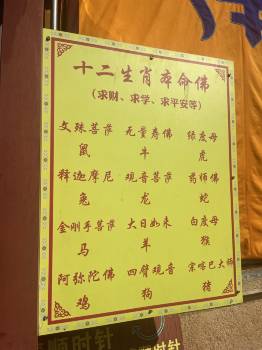 十二生肖本命佛
(求财、求学、求平安等)
文殊菩萨 无量寿佛 绿度母
鼠 牛 虎
释迦摩尼 观音菩萨 药师佛
兔 龙 蛇
金刚手菩萨 大日如来 白度母
马 羊 猴
阿弥陀佛 四臂观音 宗喀巴大师
鸡 狗 猪
顺时针